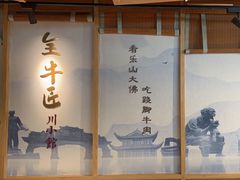 全牛匠
川小館
看乐山大佛
吃跷脚牛肉